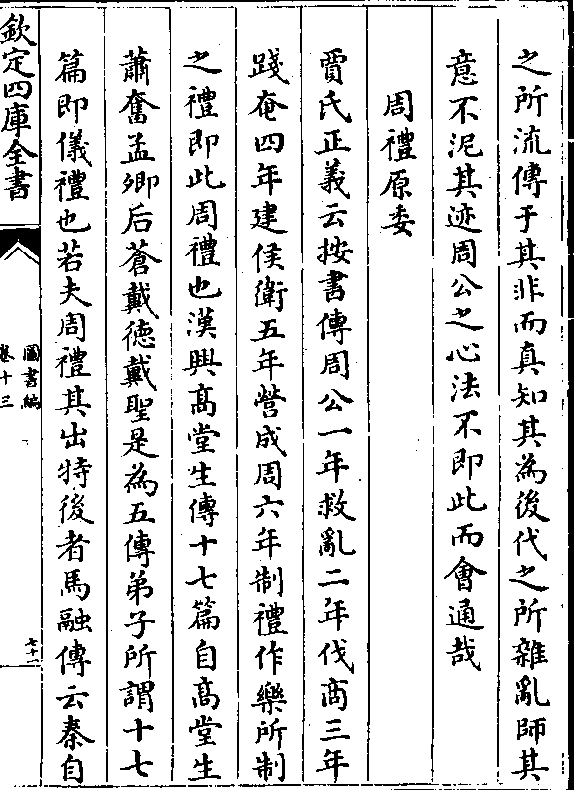 之所流傳于其非而真知其為後代之所雜亂師其
意不泥其迹周公之心法不即此而會通哉
周禮原委
賈氏正義云按書傳周公一年救亂二年伐商三年
踐奄四年建侯衛五年營成周六年制禮作樂所制
之禮即此周禮也漢興髙堂生傳十七篇自髙堂生
蕭奮孟卿后蒼戴德戴聖是為五傳弟子所謂十七
篇即儀禮也若夫周禮其出特後者馬融傳云秦自
欽定四庫全書
圖書編
卷十三
七十一